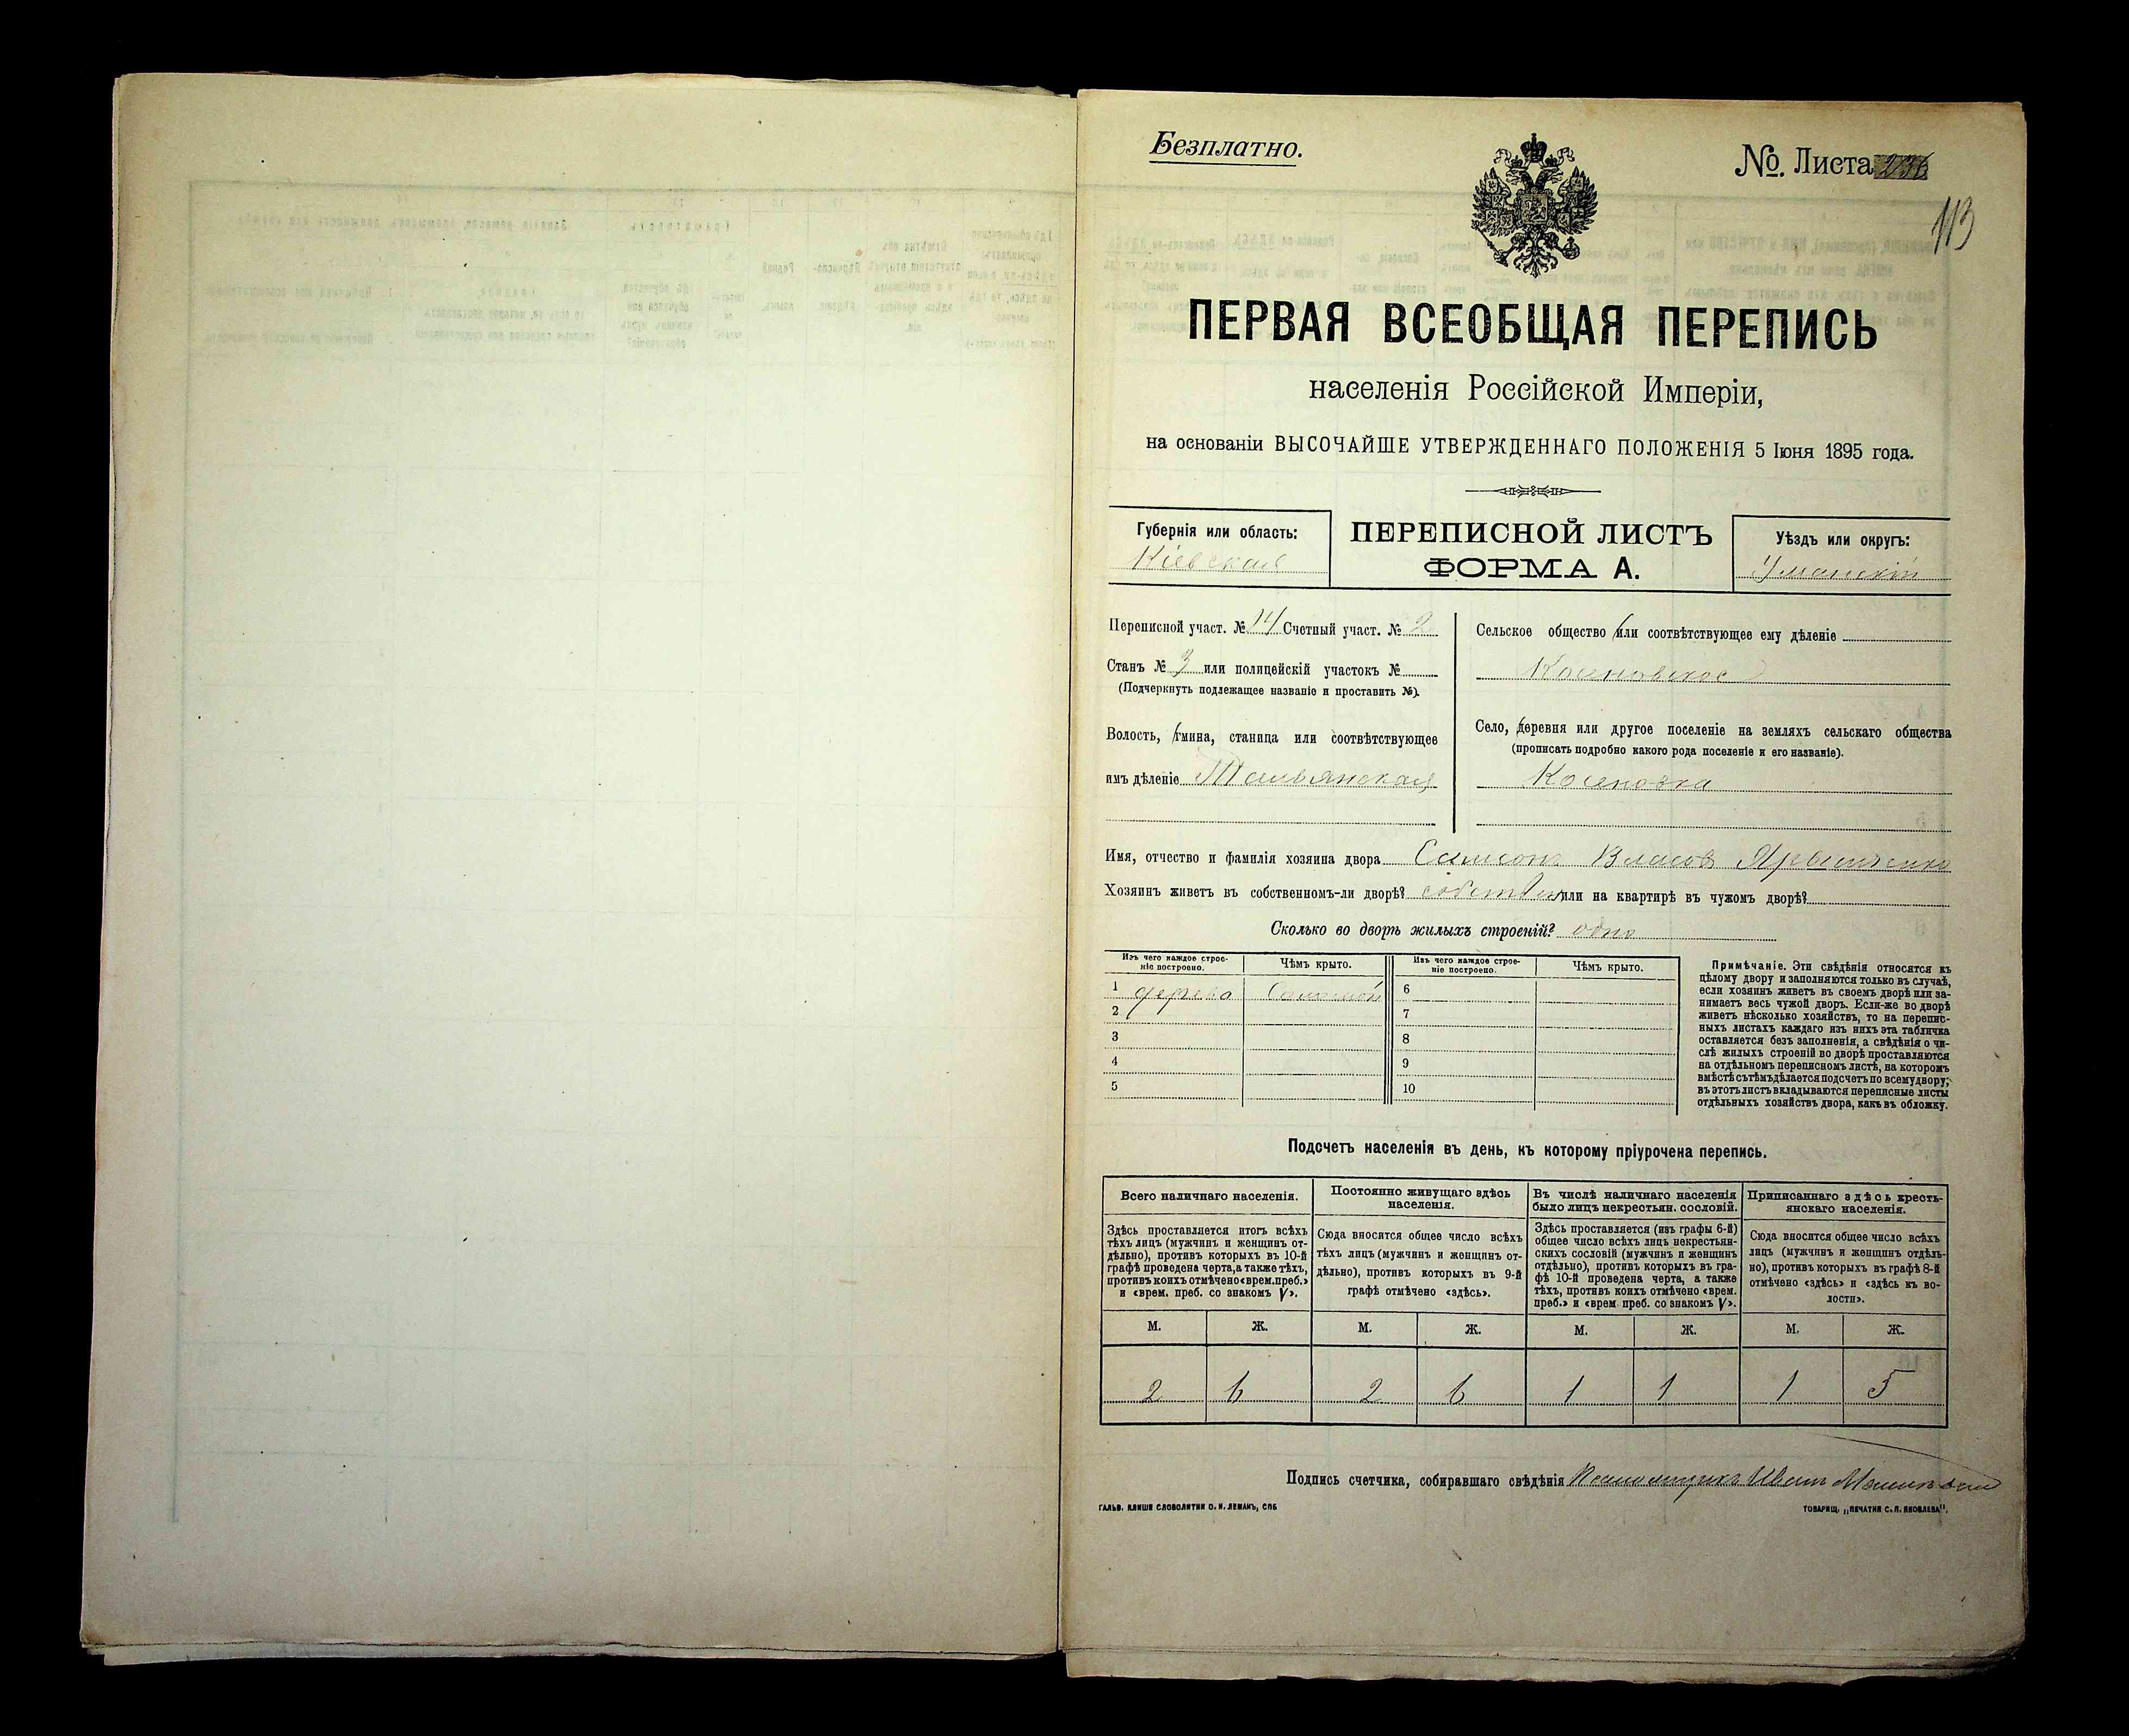 Безплатно.
№. Листа 236
113
ПЕРВАЯ ВСЕОБЩАЯ ПЕРЕПИСЬ
населенія Россійской Имперіи,
на основаніи ВЫСОЧАЙШЕ УТВЕРЖДЕННАГО ПОЛОЖЕНІЯ 5 Іюня 1895 года.
Губернія или область:
Кіевская
ПЕРЕПИСНОЙ ЛИСТЪ
ФОРМА А.
Уѣздъ или округъ:
Уманскій
Переписной участ. № 14 Счетный участ. № 2
Станъ № 3 или полицейскій участокъ №
(Подчеркнуть подлежащее названіе и проставить №).
Волость, гмина, станица или соотвѣтствующее
имъ дѣленіе Тальянская
Сельское общество или соотвѣтствующее ему дѣленіе
Косеновское
Село, деревня или другое поселеніе на земляхъ сельскаго общества
(прописать подробно какого рода поселеніе и его названіе).
Косеновка
Имя, отчество и фамилія хозяина двора Самсонъ Власов
Хозяинъ живетъ въ собственномъ-ли дворѣ? собствен или на квартирѣ въ чужомъ дворѣ?
Сколько во дворѣ жилыхъ строеній? одно
Изъ чего каждое строе-
ніе построено.
Чѣмъ крыто.
1 дерева Соломой
2
3
4
5
Изъ чего каждое строе-
ніе построено.
Чѣмъ крыто.
6
7
8
9
10
Примѣчаніе. Эти свѣдѣнія относятся къ
цѣлому двору и заполняются только въ случаѣ,
если хозяинъ живетъ въ своемъ дворѣ или за-
нимаетъ весь чужой дворъ. Если-же во дворѣ
живетъ нѣсколько хозяйствъ, то на перепис-
ныхъ листахъ каждаго изъ нихъ эта табличка
оставляется безъ заполненія, а свѣдѣнія о чи-
слѣ жилыхъ строеній во дворѣ проставляются
на отдѣльномъ переписномъ листѣ, на которомъ
вмѣстѣ съ тѣмъ дѣлается подсчетъ по всему двору;
въ этотъ листъ вкладываются переписные листы
отдѣльныхъ хозяйствъ двора, какъ въ обложку.
Подсчетъ населенія въ день, къ которому пріурочена перепись.
Всего наличнаго населенія.
Здѣсь проставляется итогъ всѣхъ
тѣхъ лицъ (мужчинъ и женщинъ от-
дѣльно), противъ которыхъ въ 10-й
графѣ проведена черта, а также тѣхъ,
противъ коихъ отмѣчено «врем. преб.»
и «врем. преб. со знакомъ V».
Постоянно живущаго здѣсь
населенія.
Сюда вносится общее число всѣхъ
тѣхъ лицъ (мужчинъ и женщинъ от-
дѣльно), противъ которыхъ въ 9-й
графѣ отмѣчено «здѣсь».
Въ числѣ наличнаго населенія
было лицъ некрестьян. сословій.
Здѣсь проставляется (изъ графы 6-й)
общее число всѣхъ лицъ некрестьян-
скихъ сословій (мужчинъ и женщинъ
отдѣльно), противъ которыхъ въ гра-
фѣ 10-й проведена черта, а также
тѣхъ, противъ коихъ отмѣчено «врем.
преб.» и «врем. преб. со знакомъ V».
Приписаннаго здѣсь кресть-
янскаго населенія.
Сюда вносится общее число всѣхъ
лицъ (мужчинъ и женщинъ отдѣль-
но), противъ которыхъ въ графѣ 8-й
отмѣчено «здѣсь» и «здѣсь къ во-
лости».
М. Ж. М. Ж. М. Ж. М. Ж.
2 6 2 6 1 1 1 5
Подпись счетчика, собиравшаго свѣдѣнія Псаломщикъ Иванъ
ГАЛЬВ. КЛИШЕ СЛОВОЛИТНИ О. И. ЛЕМАНЪ, СПБ
ТОВАРИЩ. „ПЕЧАТНЯ С. П. ЯКОВЛЕВА".